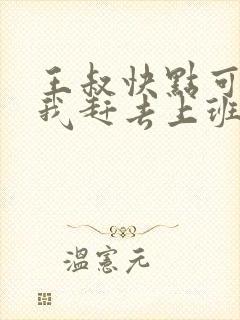 王叔快點可
我赶去上班
溫憲元